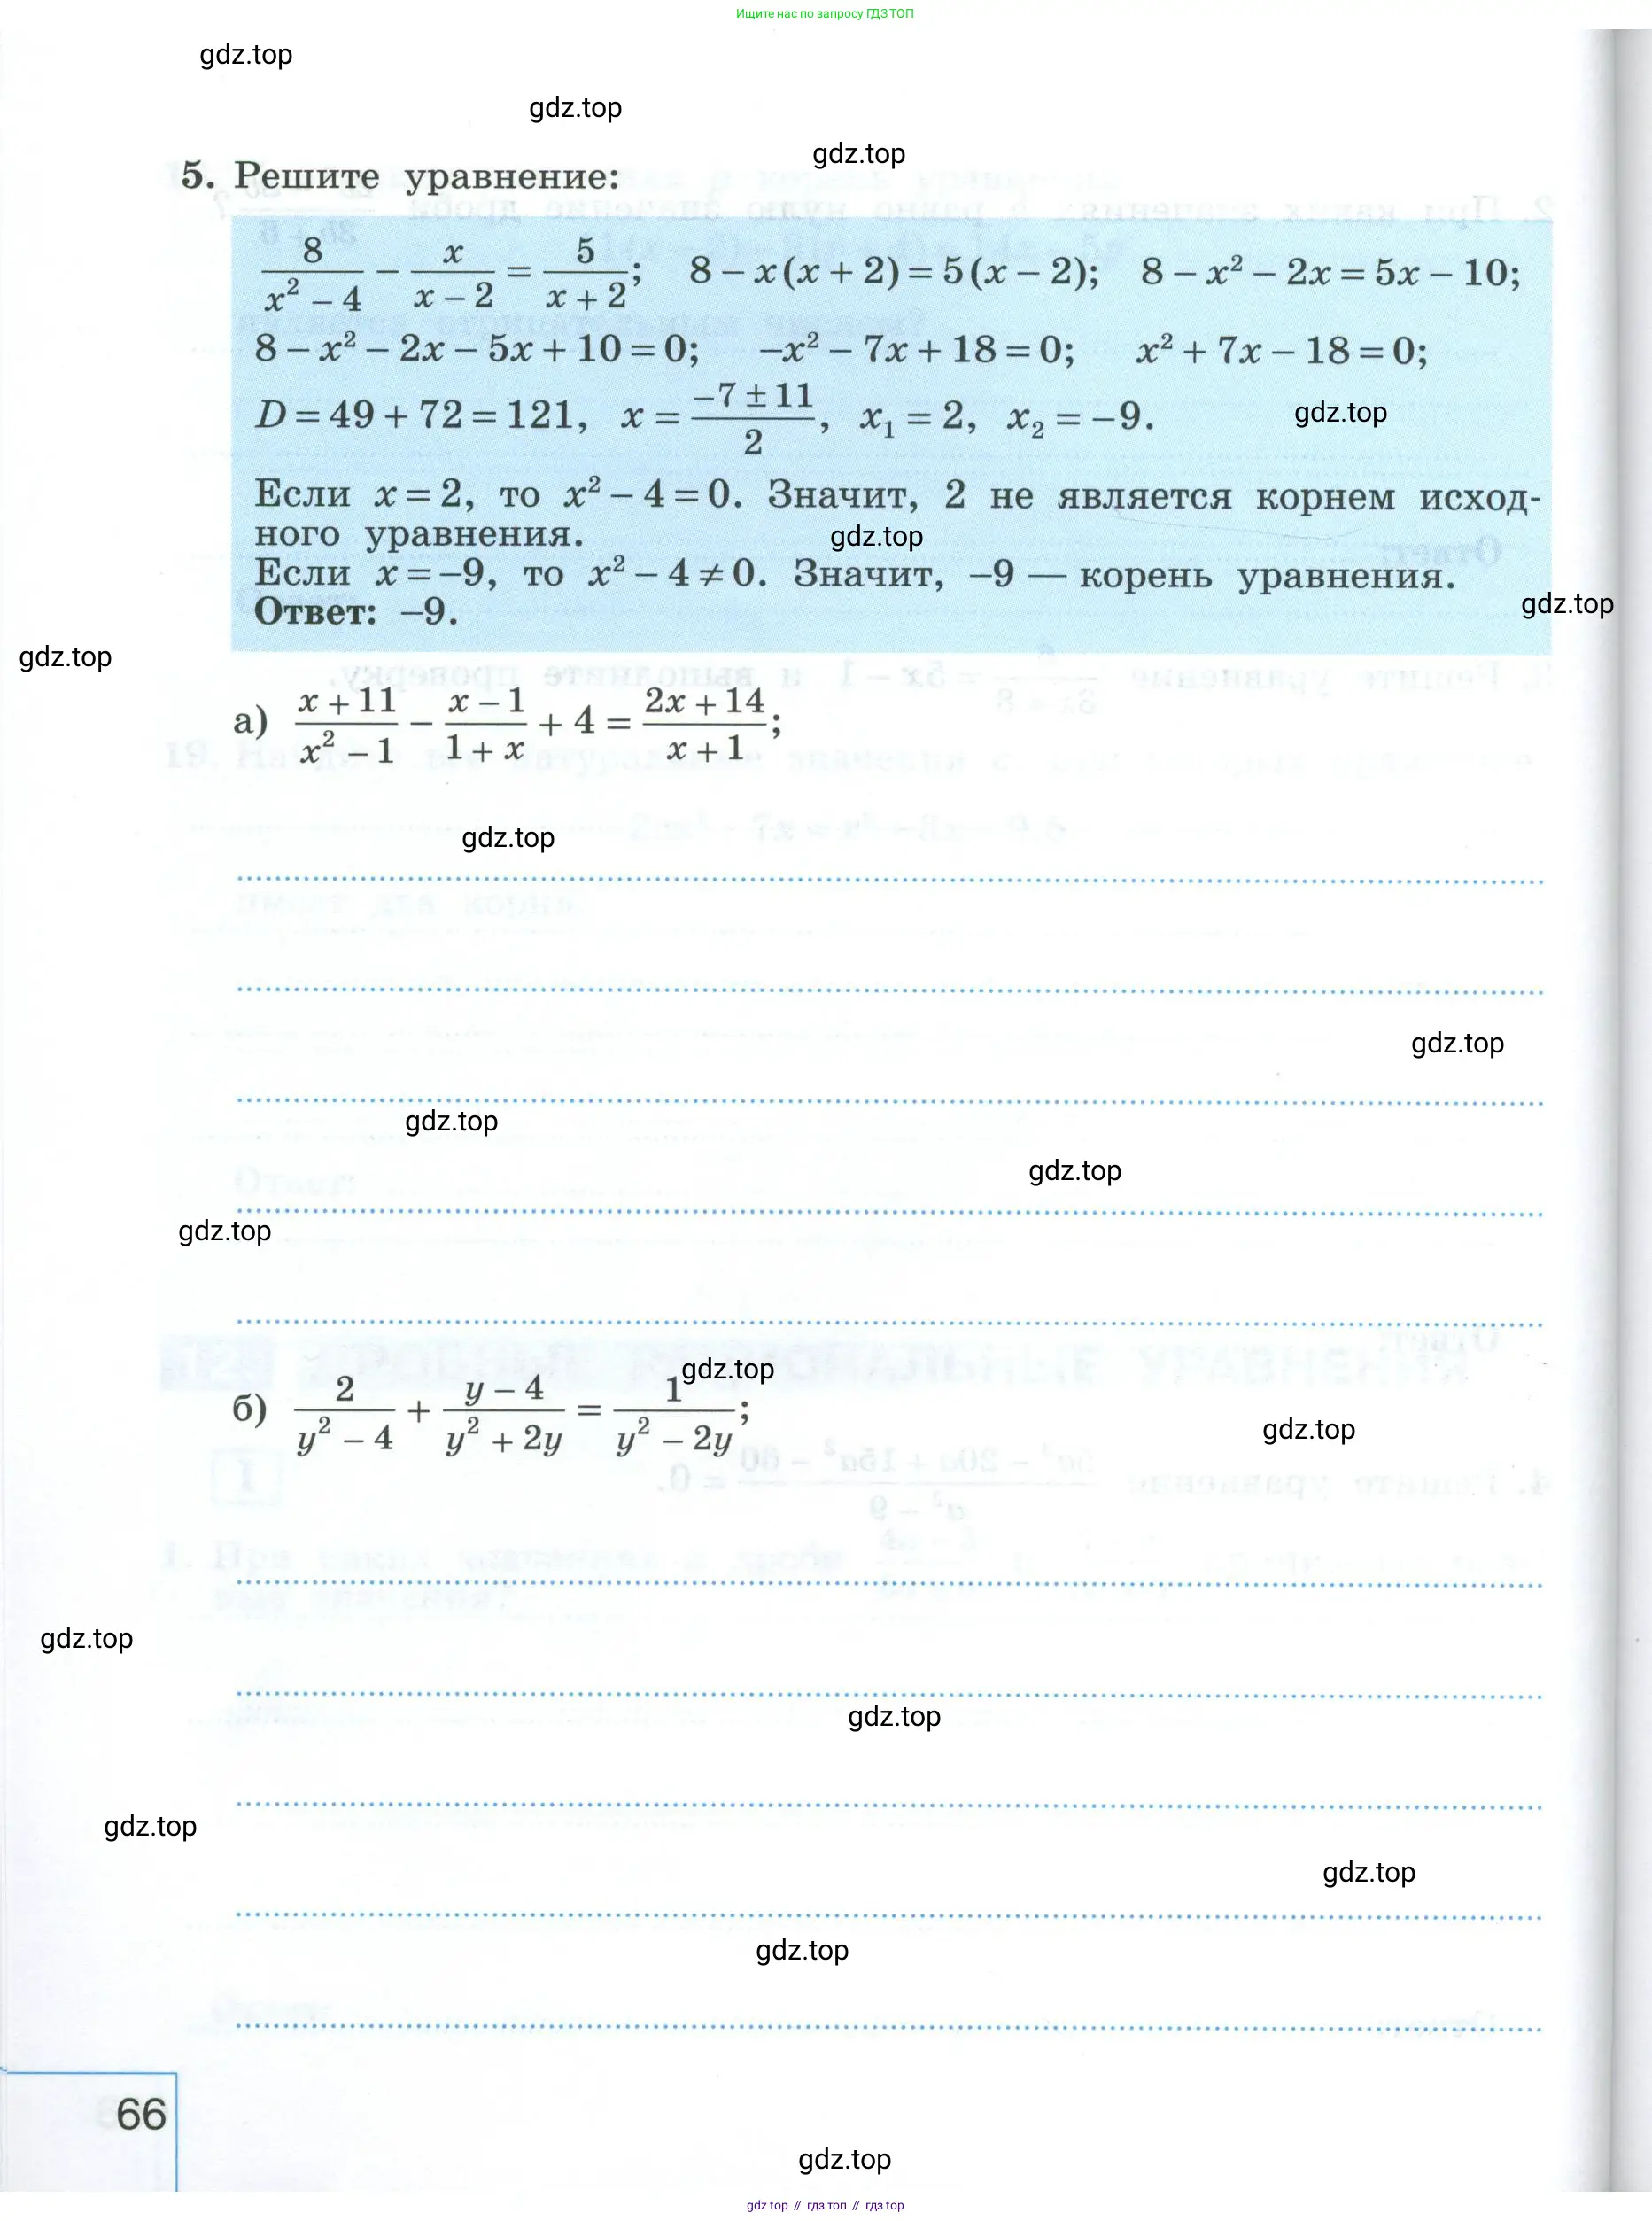 Ищите нас по запросу ГДЗ ТОП
gdz.top
gdz.top
gdz.top
5. Решите уравнение:
8/(x² − 4) − x/(x − 2) = 5/(x + 2); 8 − x(x + 2) = 5(x − 2); 8 − x² − 2x = 5x − 10;
8 − x² − 2x − 5x + 10 = 0; −x² − 7x + 18 = 0; x² + 7x − 18 = 0;
D = 49 + 72 = 121, x = (−7 ± 11)/2, x₁ = 2, x₂ = −9.
gdz.top
Если x = 2, то x² − 4 = 0. Значит, 2 не является корнем исход-
ного уравнения.
gdz.top
Если x = −9, то x² − 4 ≠ 0. Значит, −9 — корень уравнения.
Ответ: −9.
gdz.top
gdz.top
а) (x + 11)/(x² − 1) − (x − 1)/(1 + x) + 4 = (2x + 14)/(x + 1);
gdz.top
gdz.top
gdz.top
gdz.top
gdz.top
gdz.top
б) 2/(y² − 4) + (y − 4)/(y² + 2y) = 1/(y² − 2y);
gdz.top
gdz.top
gdz.top
gdz.top
gdz.top
gdz.top
66
gdz.top
gdz top // гдз топ // гдз top